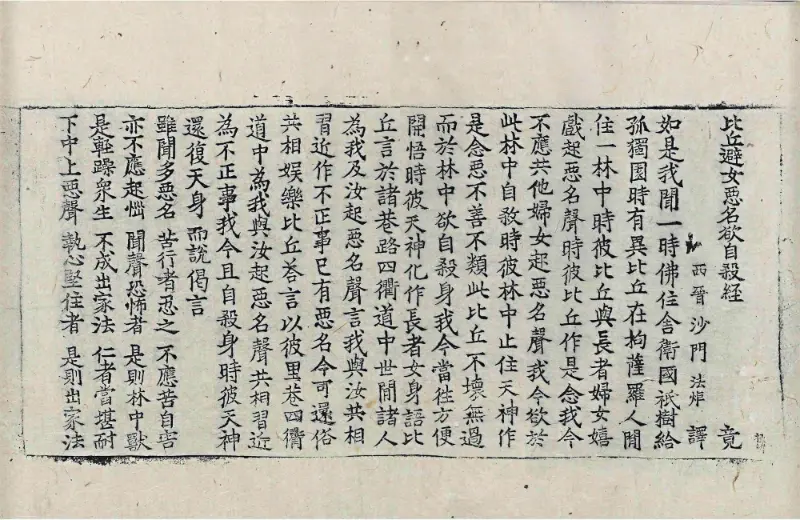 比丘避女惡名欲自殺経 竟
西晉沙門 法炬 譯
如是我聞一時佛住舍衛國祇樹給
孤獨園時有異比丘在拘薩羅人間
住一林中時彼比丘與長者婦女嬉
戲起惡名聲時彼比丘作是念我今
不應共他婦女起惡名聲我今欲於
此林中自殺時彼林中止住天神作
是念惡不善不類此比丘不壞無過
而於林中欲自殺身我今當往方便
開悟時彼天神化作長者女身語比
丘言於諸巷路四衢道中世間諸人
為我及汝起惡名聲言我與汝共相
習近作不正事已有惡名今可還俗
共相娛樂比丘荅言以彼里巷四衢
道中為我與汝起惡名聲共相習近
為不正事我今且自殺身時彼天神
還復天身而說偈言
雖聞多惡名 苦行者忍之 不應苦自害
亦不應起惱 聞聲恐怖者 是則林中獸
是輕躁衆生 不成出家法 仁者當堪耐
下中上惡聲 執心堅住者 是則出家法